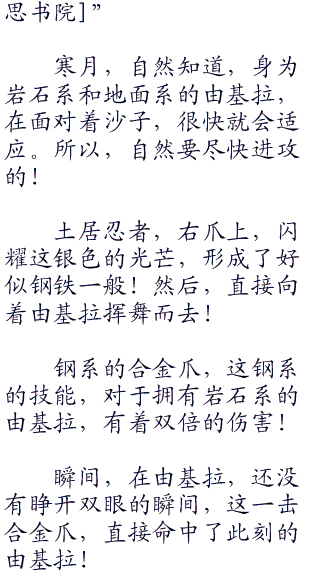 思书院]”
寒月，自然知道，身为
岩石系和地面系的由基拉，
在面对着沙子，很快就会适
应。所以，自然要尽快进攻
的！
土居忍者，右爪上，闪
耀这银色的光芒，形成了好
似钢铁一般！然后，直接向
着由基拉挥舞而去！
钢系的合金爪，这钢系
的技能，对于拥有岩石系的
由基拉，有着双倍的伤害！
瞬间，在由基拉，还没
有睁开双眼的瞬间，这一击
合金爪，直接命中了此刻的
由基拉！